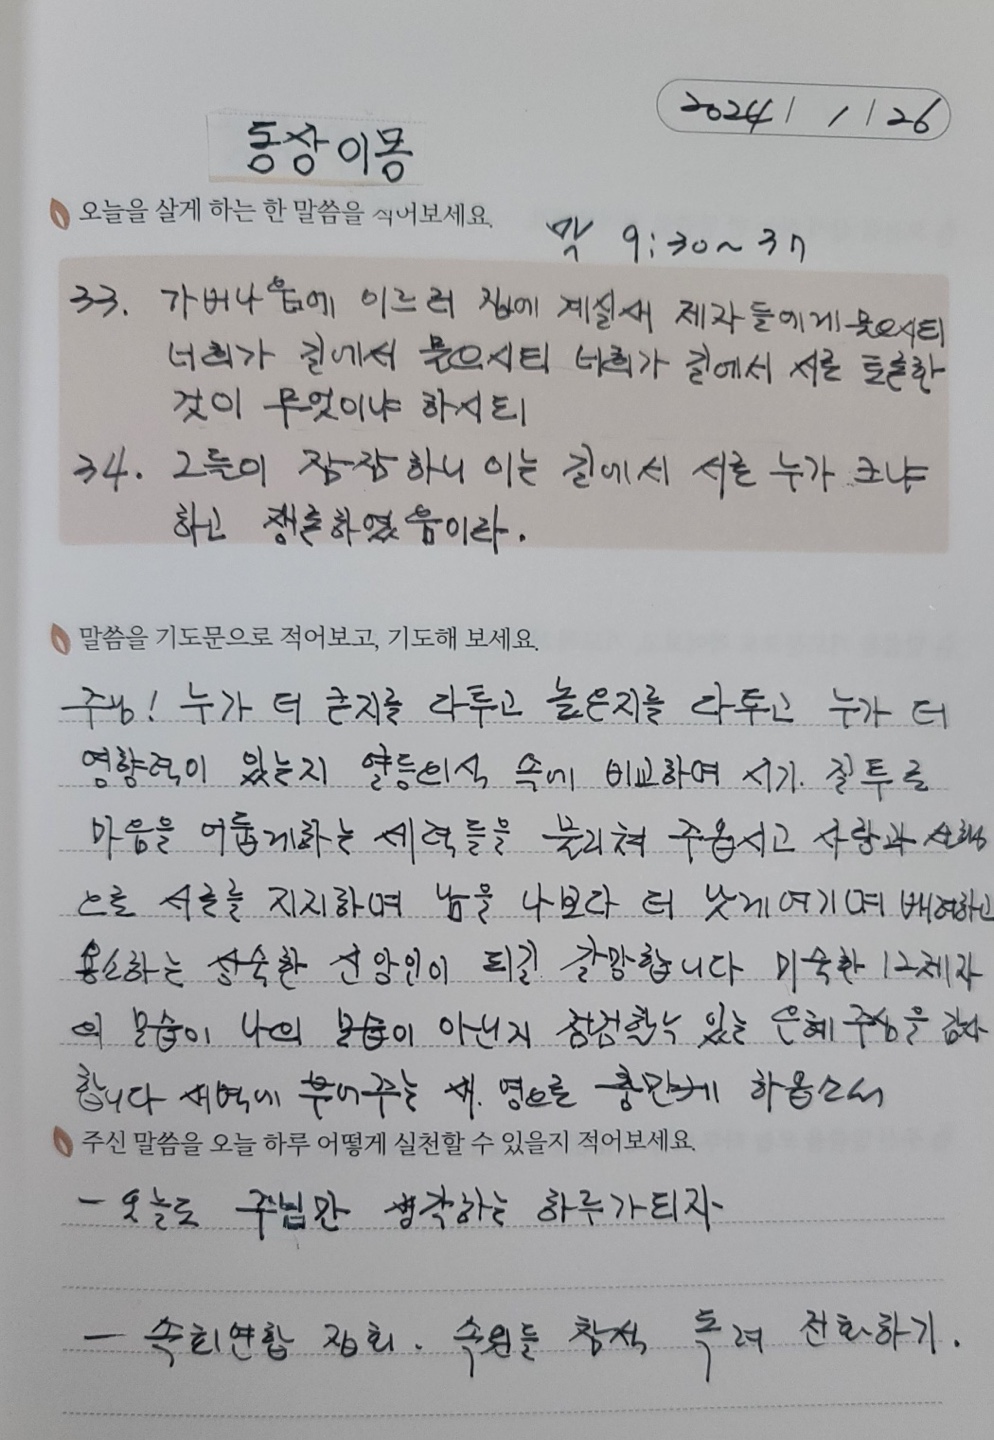 2024 / 1 / 26
동상이몽
오늘을 살게 하는 한 말씀을 적어보세요.
막 9:30~37
33. 가버나움에 이르러 집에 계실새 제자들에게 뭇으시되
너희가 길에서 물으시되 너희가 길에서 서로 토론한
것이 무엇이냐 하시되
34. 그들이 잠잠하니 이는 길에서 서로 누가 크냐
하고 쟁론하였음이라.
말씀을 기도문으로 적어보고, 기도해 보세요.
주님! 누가 더 큰지를 다투고 높은지를 다투고 누가 더
영향력이 있는지 열등의식 속에 비교하며 시기. 질투로
마음을 어둡게하는 세력들을 물리쳐 주옵시고 사랑과
으로 서로를 지지하며 남을 나보다 더 낫게여기며 배려하고
용소하는 성숙한 신앙인이 되길 갈망합니다 미숙한 12제자
의 모습이 나의 모습이 아닌지 점검할수 있는 은혜 주심을 감사
합니다 새벽에 부어주는 새. 영으로 충만케 하옵소서
주신 말씀을 오늘 하루 어떻게 실천할 수 있을지 적어보세요.
- 오늘도 주님만 생각하는 하루가되자
- 속회연합 집회. 속원들 참석 독려 전화하기.